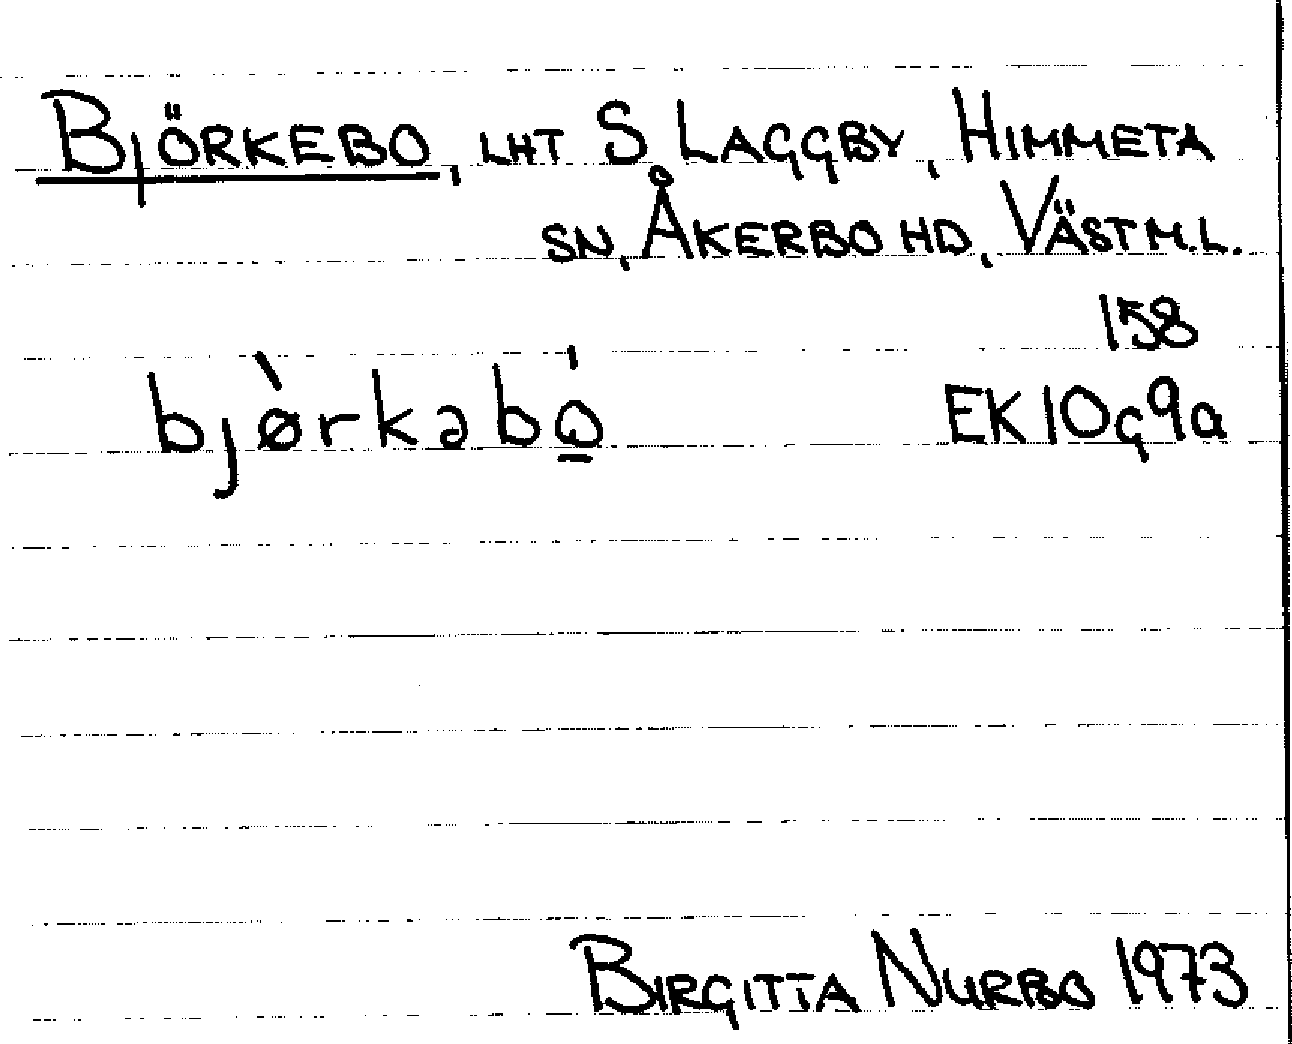 BJÖRKEBO, LHT S LAGGBY, HIMMETA
SN, ÅKERBO HD, VÄSTM.L.
158
bjø̀rkəbọ́ EK10g9a
BIRGITTA NURBO 1973